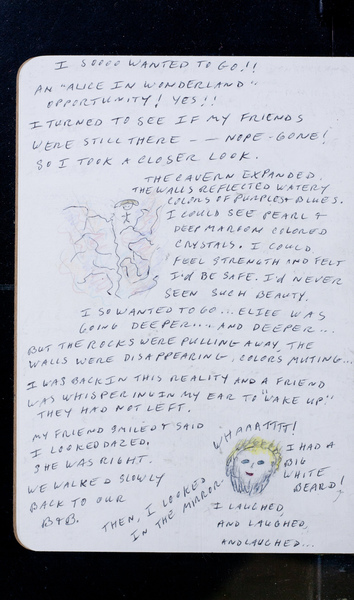 I SOOOO WANTED TO GO!!
AN "ALICE IN WONDERLAND"
OPPORTUNITY! YES!!
I TURNED TO SEE IF MY FRIENDS
WERE STILL THERE -- NOPE-GONE!
SO I TOOK A CLOSER LOOK.
THE CAVERN EXPANDED.
THE WALLS REFLECTED WATERY
COLORS OF PURPLES & BLUES.
I COULD SEE PEARL &
DEEP MAROON COLORED
CRYSTALS. I COULD
FEEL STRENGTH AND FELT
I'd BE SAFE. I'd NEVER
SEEN SUCH BEAUTY.
I SO WANTED TO GO... ELIEE WAS
GOING DEEPER.... AND DEEPER...
BUT THE ROCKS WERE PULLING AWAY, THE
WALLS WERE DISAPPEARING, COLORS MUTING...
I WAS BACK IN THIS REALITY AND A FRIEND
WAS WHISPERING IN MY EAR TO "WAKE UP"
THEY HAD NOT LEFT.
MY FRIEND SMILED & SAID
I LOOKED DAZED.
SHE WAS RIGHT.
WE WALKED SLOWLY
BACK TO OUR
B&B.
THEN, I LOOKED
IN THE MIRROR.
WHAAATTTT!
I HAD A
BIG
WHITE
BEARD!
I LAUGHED,
AND LAUGHED,
AND LAUGHED...